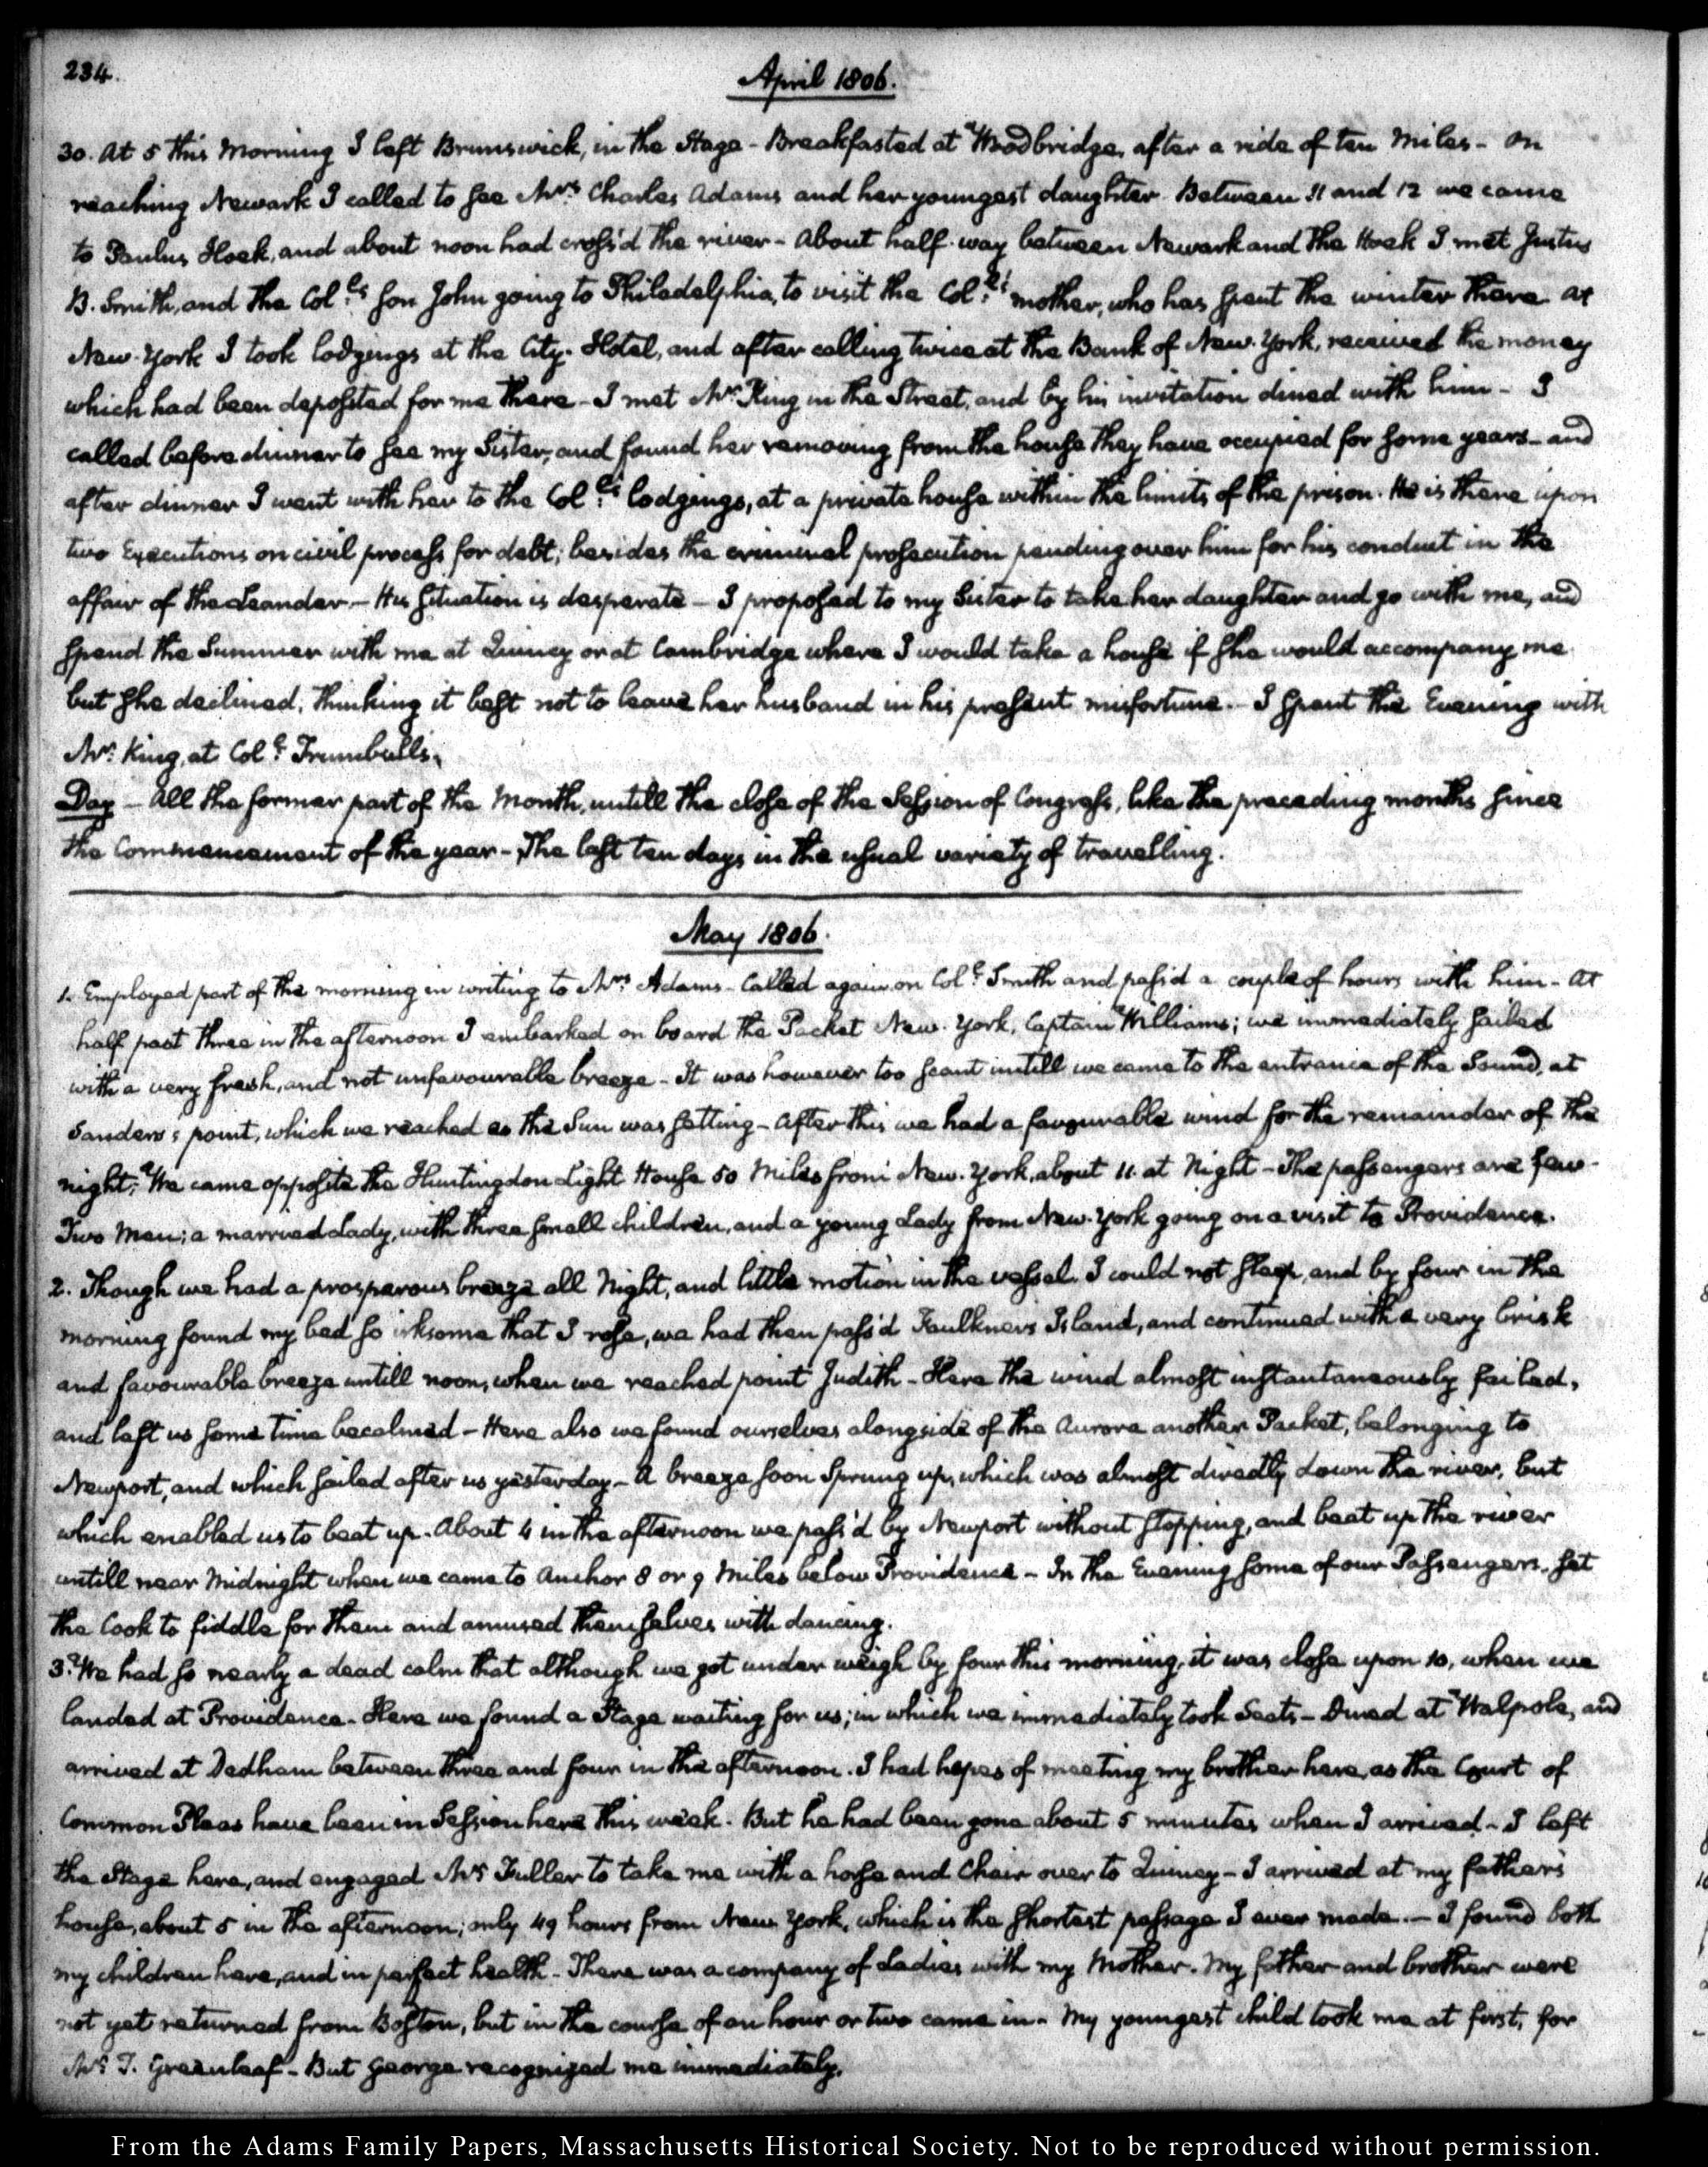 234.
April 1806.
30. At 5 this Morning I left Brunswick, in the Stage - Breakfasted at Woodbridge, after a ride of ten Miles - On
reaching Newark I called to see Mrs Charles Adams and her youngest daughter. Between 11 and 12 we came
to Paulus Hook, and about noon had cross'd the river - About half-way between Newark and the Hook I met Justus
B. Smith, and the Coll:'s son John going to Philadelphia, to visit the Coll:'s mother, who has spent the winter there. At
New-York I took lodgings at the City-Hotel, and after calling twice at the Bank of New-York, received the money
which had been deposited for me there - I met Mr King in the Street, and by his invitation dined with him - I
called before dinner to see my Sister, and found her removing from the house they have occupied for some years - and
after dinner I went with her to the Coll:'s lodgings, at a private house within the limits of the prison. He is there upon
two Executions on civil process for debt; besides the criminal prosecution pending over him for his conduct in the
affair of the Leander - His situation is desperate - I proposed to my Sister to take her daughter and go with me, and
spend the Summer with me at Quincy or at Cambridge where I would take a house if she would accompany me
but she declined, thinking it best not to leave her husband in his present misfortune. - I spent the Evening with
Mr. King, at Coll: Trumbull's.
Day - All the former part of the Month, untill the close of the Session of Congress, like the preceding months since
the Commencement of the year - The last ten days in the usual variety of travelling.
May 1806.
1. Employed part of the morning in writing to Mrs Adams - Called again on Coll: Smith and pass'd a couple of hours with him - At
half past three in the afternoon I embarked on board the Packet New-York, Captain Williams; we immediately sailed
with a very fresh, and not unfavourable breeze - It was however too scant untill we came to the entrance of the Sound, at
Sanders's point, which we reached as the Sun was setting - After this we had a favourable wind for the remainder of the
night; We came opposite the Huntingdon Light House 50 Miles from New-York, about 11 at Night - The passengers are few -
Two Men; a married Lady, with three small children, and a young Lady from New-York going on a visit to Providence.
2. Though we had a prosperous breeze all Night, and little motion in the vessel, I could not sleep, and by four in the
morning found my bed so irksome that I rose, we had then pass'd Faulkners Island, and continued with a very brisk
and favourable breeze untill noon, when we reached point Judith - Here the wind almost instantaneously failed,
and left us some time becalmed - Here also we found ourselves alongside of the Aurora another Packet, belonging to
Newport, and which sailed after us yesterday - A breeze soon sprung up, which was almost directly down the river, but
which enabled us to beat up. About 4 in the afternoon we pass'd by Newport without stopping, and beat up the river
untill near Midnight when we came to Anchor 8 or 9 Miles below Providence - In the Evening some of our Passengers, set
the Cook to fiddle for them and amused themselves with dancing.
3. We had so nearly a dead calm that although we got under weigh by four this morning, it was close upon 10, when we
landed at Providence. Here we found a Stage waiting for us; in which we immediately took Seats - Dined at Walpole, and
arrived at Dedham between three and four in the afternoon. I had hopes of meeting my brother here, as the Court of
Common Pleas have been in Session here this week. But he had been gone about 5 minutes when I arrived - I left
the Stage here, and engaged Mr Fuller to take me with a horse and Chair over to Quincy - I arrived at my father's
house, about 5 in the afternoon; only 49 hours from New York, which is the shortest passage I ever made. - I found both
my children here, and in perfect health - There was a company of Ladies with my Mother. My father and brother were
not yet returned from Boston, but in the course of an hour or two came in. My youngest child took me at first, for
Mr T. Greenleaf - But George recognized me immediately.
From the Adams Family Papers, Massachusetts Historical Society. Not to be reproduced without permission.